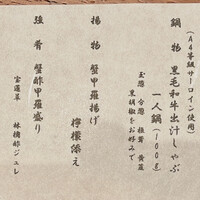 (A4等級サーロイン使用)
鍋物 黒毛和牛出汁しゃぶ
一人鍋(100g)
玉葱 白葱 椎茸 黄韮
黒胡椒をお好みで
揚物 蟹甲羅揚げ
檸檬添え
強肴 蟹酢甲羅盛り
宝蓮草 林檎酢ジュレ